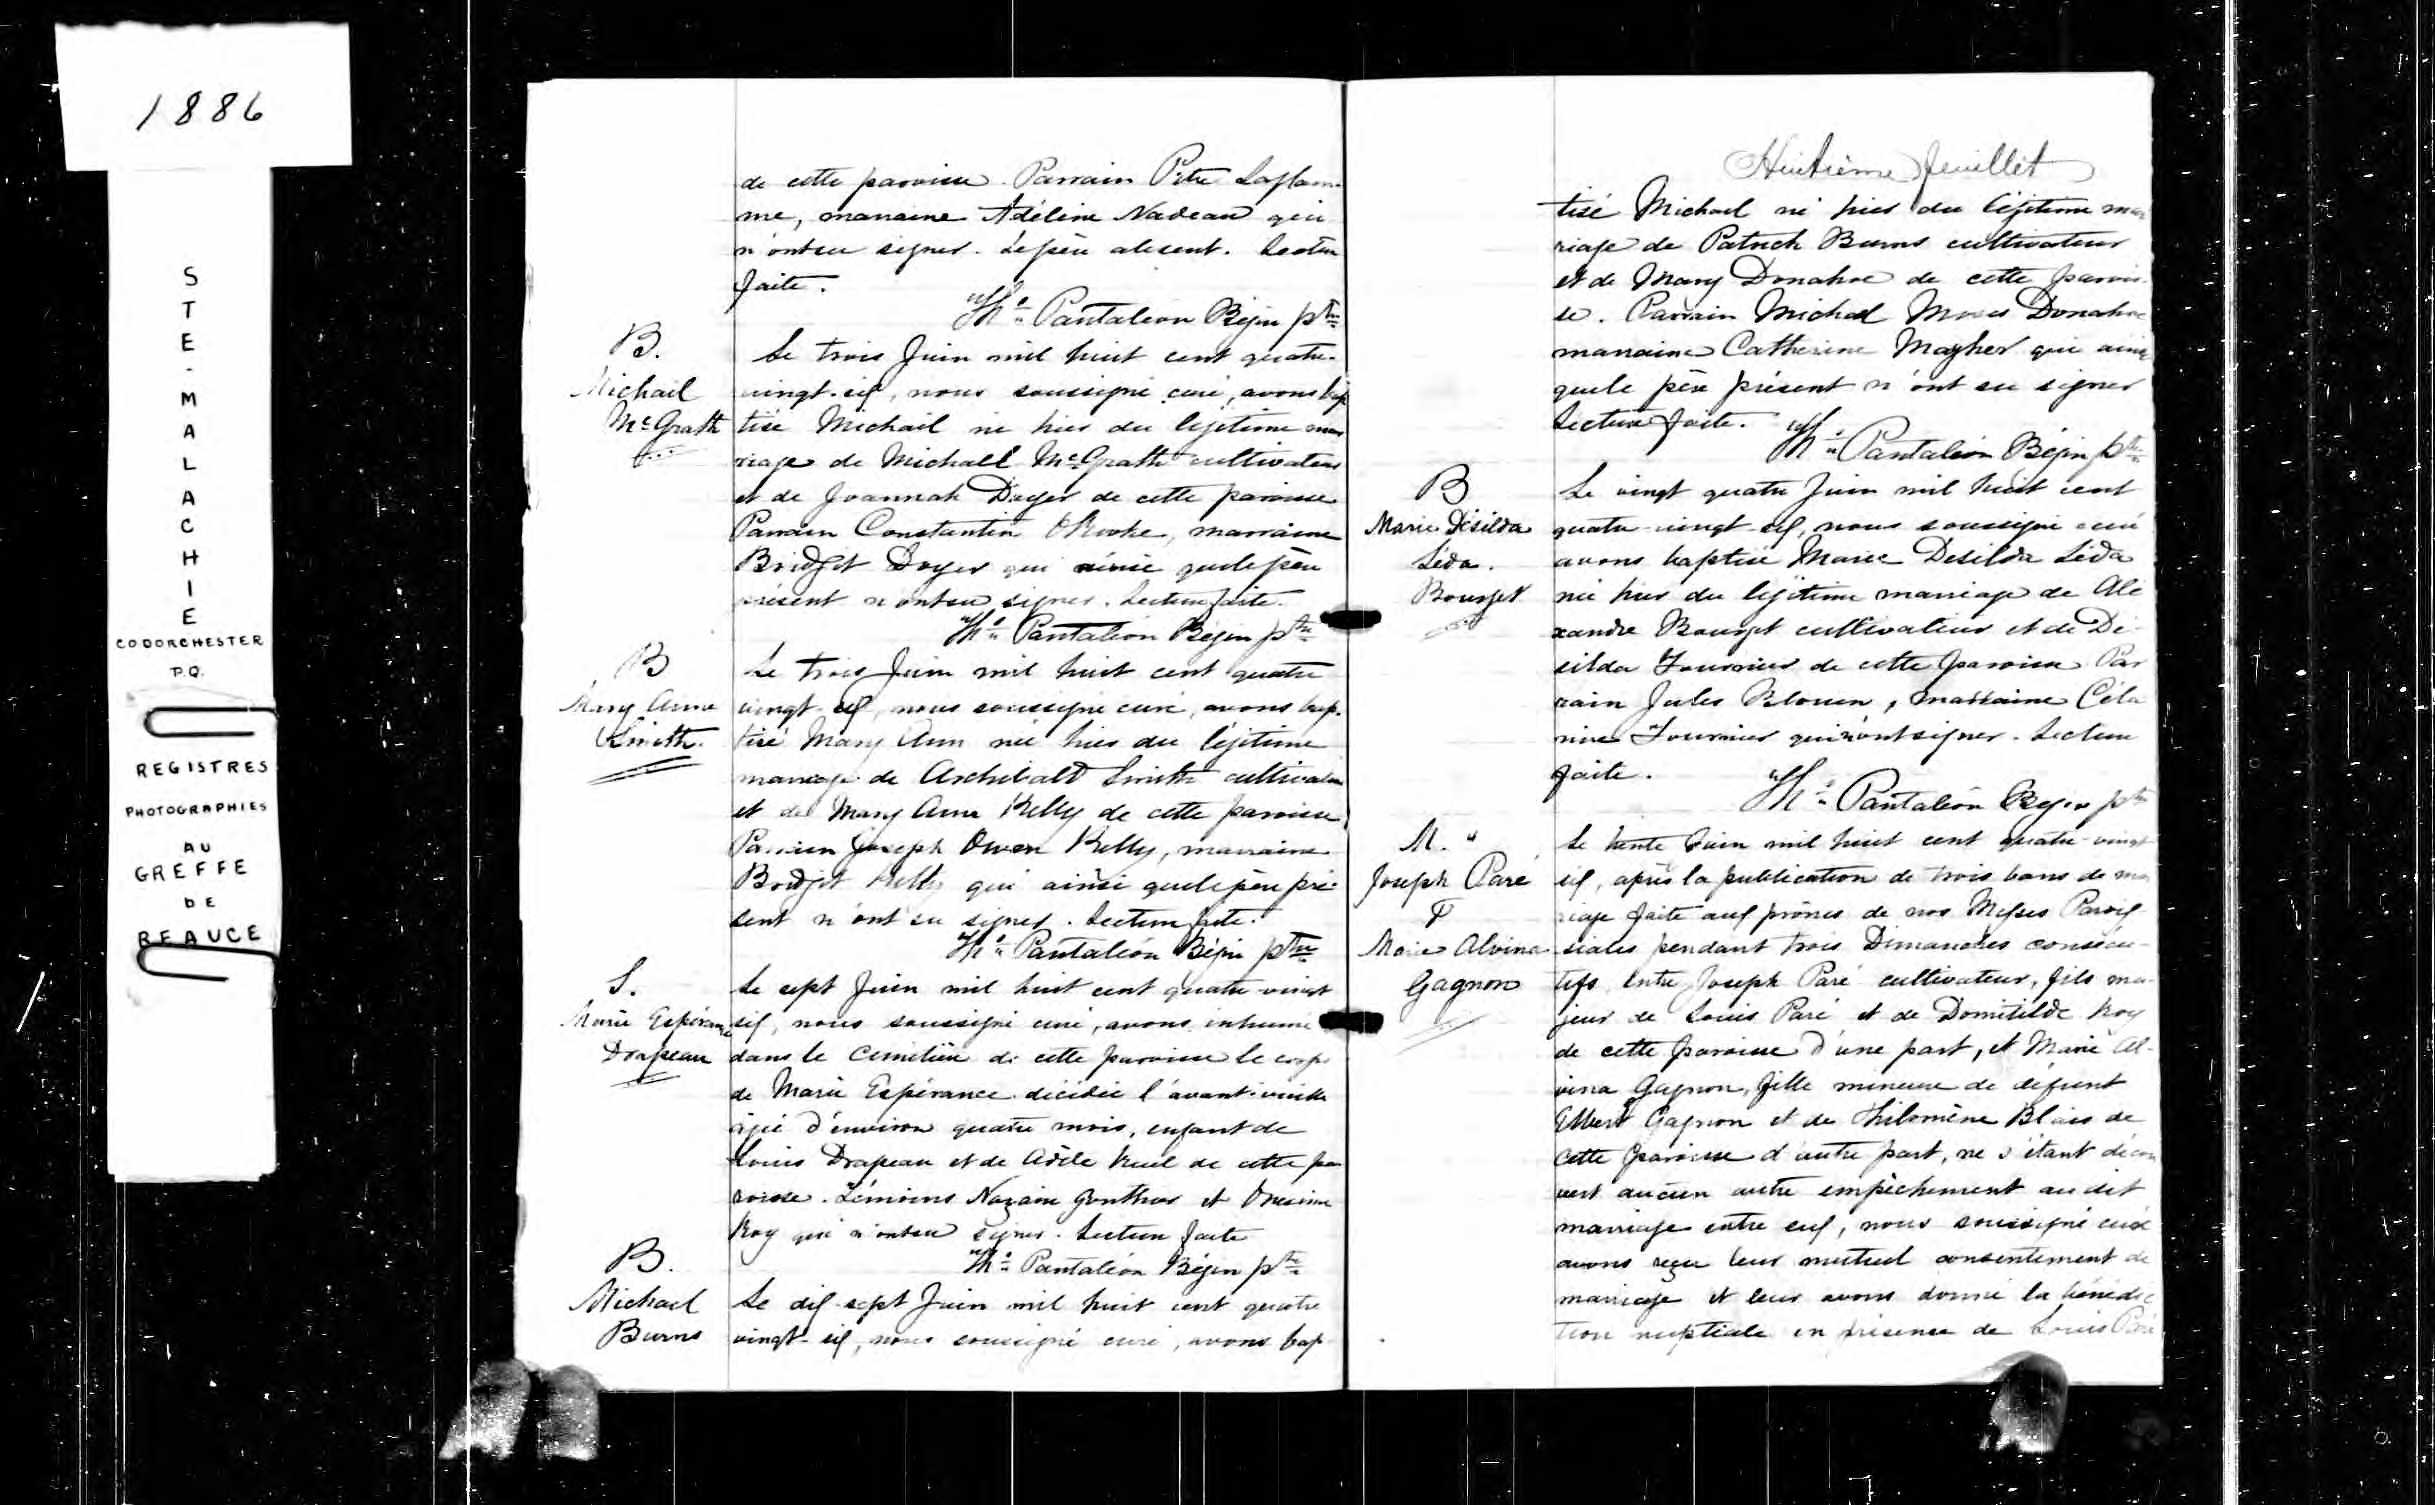 1886
STE-MALACHIE
CO DORCHESTER
P.Q.
REGISTRES
PHOTOGRAPHIES
AU
GREFFE
DE
BEAUCE
de cette paroisse. Parrain Pitre Laflam-
me, marraine Adéline Nadeau qui
n'ont su signer. Le père absent. Lecture
faite.
Pantaléon Bégin ptre
B.
Michail
McGrath
Le trois Juin mil huit cent quatre-
vingt-six, nous soussigné curé, avons bap
tisé Michail né hier du légitime mar
riage de Michall McGrath cultivateur
et de Joannah Dwyer de cette paroisse
Parrain Constantin O'Rooke, marraine
Bridget Dwyer qui ainsi que le père
présent n'ont su signer. Lecture faite.
Pantaléon Bégin ptre
B
Mary Anne
Smith.
Le trois Juin mil huit cent quatre
vingt-six, nous soussigné curé, avons bap-
tisé Mary Ann née hier du légitime
mariage de Archibald Smith cultivateur
et de Mary Ann Kelly de cette paroisse,
Parrain Joseph Owen Kelly, marraine
Bridget Kelly qui ainsi que le père pré-
sent n'ont su signer. Lecture faite.
Pantaléon Bégin ptre
S.
Marie Espérance
Drapeau
Le sept Juin mil huit cent quatre-vingt
six, nous soussigné curé, avons inhumé
dans le cimetière de cette paroisse le corps
de Marie Espérance décédée l'avant-veille
agée d'environ quatre mois, enfant de
Louis Drapeau et de Adèle Ruel de cette pa
roisse. Témoins Nazaire Gonthier et Onesime
Roy qui n'ont su signer. Lecture faite
Pantaléon Bégin ptre
B.
Michael
Burns
Le dix-sept Juin mil huit cent quatre
vingt-six, nous soussigné curé, avons bap-
Huitième feuillet
tisé Michael né hier du légitime mar
riage de Patrick Burns cultivateur
et de Mary Donahoe de cette parois-
se. Parrain Michael Moses Donahoe
marraine Catherine Magher qui ainsi
que le père présent n'ont su signer
Lecture faite.
Pantaléon Bégin ptre
B
Marie Désilda
Léda.
Bourget
Le vingt quatre Juin mil huit cent
quatre-vingt-six, nous soussigné curé
avons baptisé Marie Desilda Léda
née hier du légitime mariage de Alé
xandre Bourget cultivateur et de Dé-
silda Fournier de cette paroisse Par
rain Jules Blouin, marraine Céla
nire Fournier qui n'ont signer. Lecture
faite.
Pantaléon Bégin ptre
M.
Joseph Paré
&
Marie Alvina
Gagnon
Le trente Juin mil huit cent quatre-vingt
six, après la publication de trois bans de ma
riage faite aux prônes de nos Messes Parois-
siales pendant trois Dimanches consécu-
tifs entre Joseph Paré cultivateur, fils ma-
jeur de Louis Paré et de Domitilde Roy
de cette paroisse d'une part, et Marie Al-
vina Gagnon, fille mineure de défunt
Albert Gagnon et de Philomène Blais de
cette paroisse d'autre part, ne s'étant décou
vert aucun autre empêchement au dit
mariage entre eux, nous soussigné curé
avons reçu leur mutuel consentement de
mariage et leur avons donné la bénédic
tion nuptiale en présence de Louis Paré